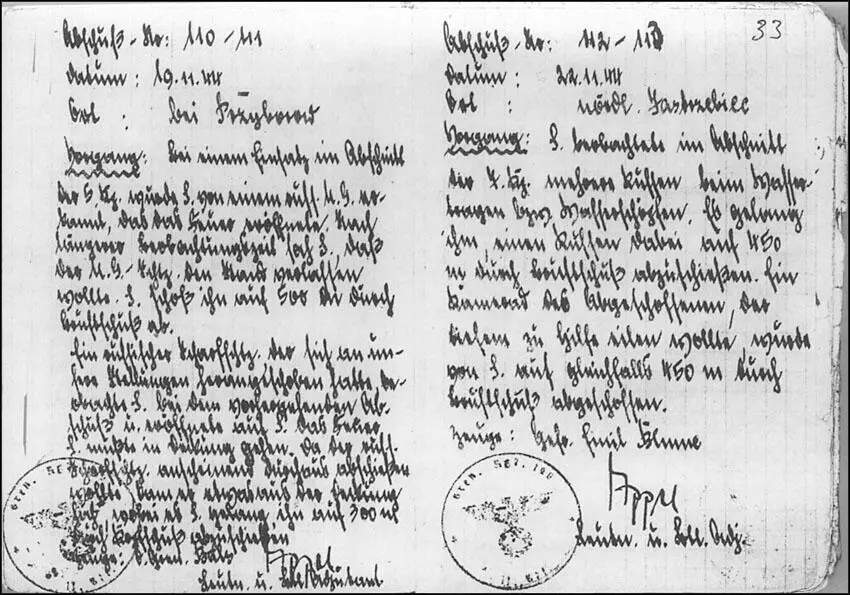 Abschuß-Nr: 110-111
Datum: 19.11.44
Ort: bei
Vorgang: Bei einem Einsatz im Abschnitt
der 5. Kp. wurde S. von einem russ. M.G. er-
kannt, das das Feuer eröffnete. Nach
längerer Beobachtungszeit sah S., daß
der M.G.-Schtz. den Stand verlassen
wollte. S. schoß ihn auf 500 m durch
Brustschuß ab.
Ein russischer Scharfschtz. der sich an un-
sere Stellungen herangeschoben hatte, be-
obachtete S. bei dem vorhergehenden Ab-
schuß u. eröffnete auf S. das Feuer
S. mußte in Deckung gehen. Da der russ.
Scharfschtz. anscheinend durchaus abschießen
wollte kam er etwas aus der Deckung
wobei es S. gelang ihn auf 300 m
durch Kopfschuß abzuschießen
Zeuge:
Appel
Leutn. u. Btl. Adjutant
33
Abschuß-Nr: 112-113
Datum: 22.11.44
Ort: nördl. Jastrzebiec
Vorgang: S. beobachtete im Abschnitt
der 7. Kp. mehrere Russen beim Wasser-
tragen bzw. Wasserschöpfen. Es gelang
ihm, einen Russen dabei auf 450
m durch Brustschuß abzuschießen. Ein
Kamerad des Abgeschossenen, der
diesem zu Hilfe eilen wollte, wurde
von S. auf gleichfalls 450 m durch
Brustschuß abgeschossen.
Zeuge: Gefr. Emil
Appel
Leutn. u. Btl. Adj.